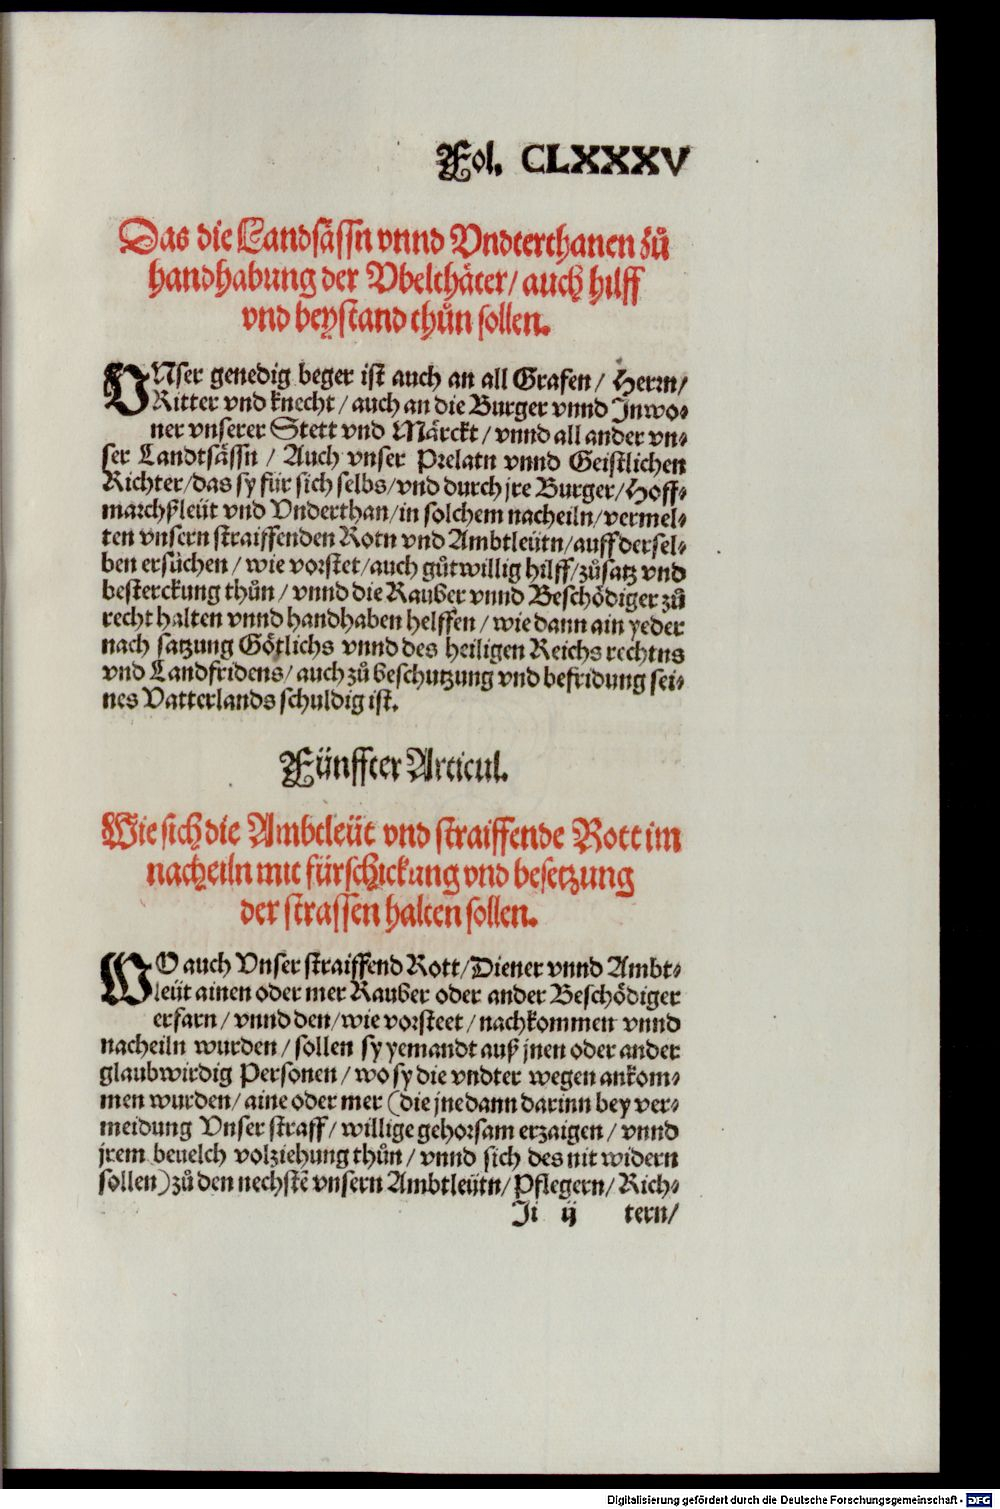 Fol. CLXXXV
Das die Landsässn vnnd Vndterthanen zů
handhabung der Vbelthäter/ auch hilff
vnd beystand thůn sollen.
VNser genedig beger ist auch an all Grafen/ Herrn/
Ritter vnd knecht/ auch an die Burger vnnd Jnwo⸗
ner vnserer Stett vnd Märckt/ vnnd all ander vn⸗
ser Landtsässn/ Auch vnser Prelatn vnnd Geistlichen
Richter/ das sy für sich selbs/ vnd durch jre Burger/ Hoff⸗
marchßleüt vnd Vnderthan/ in solchem nacheiln/ vermel⸗
ten vnsern straiffenden Rotn vnd Ambtleütn/ auff dersel⸗
ben ersůchen/ wie vorstet/ auch gůtwillig hilff/ zůsatz vnd
besterckung thůn/ vnnd die Rauber vnnd Beschödiger zů
recht halten vnnd handhaben helffen/ wie dann ain yeder
nach satzung Götlichs vnnd des heiligen Reichs rechtns
vnd Landfridens/ auch zů beschutzung vnd befridung sei⸗
nes Vatterlands schuldig ist.
Fünffter Articul.
Wie sich die Ambtleüt vnd straiffende Rott im
nacheiln mit fürschickung vnd besetzung
der strassen halten sollen.
WO auch Vnser straiffend Rott/ Diener vnnd Ambt⸗
leüt ainen oder mer Rauber oder ander Beschödiger
erfarn/ vnnd den/ wie vorsteet/ nachkommen vnnd
nacheiln wurden/ sollen sy yemandt auß jnen oder ander
glaubwirdig Personen/ wo sy die vndter wegen ankom⸗
men wurden/ aine oder mer (die jne dann darinn bey ver⸗
meidung Vnser straff/ willige gehorsam erzaigen/ vnnd
jrem beuelch volziehung thůn/ vnnd sich des nit widern
sollen) zů den nechstē vnsern Ambtleütn/ Pflegern/ Rich⸗
Ji ij tern/
Digitalisierung gefördert durch die Deutsche Forschungsgemeinschaft - DFG